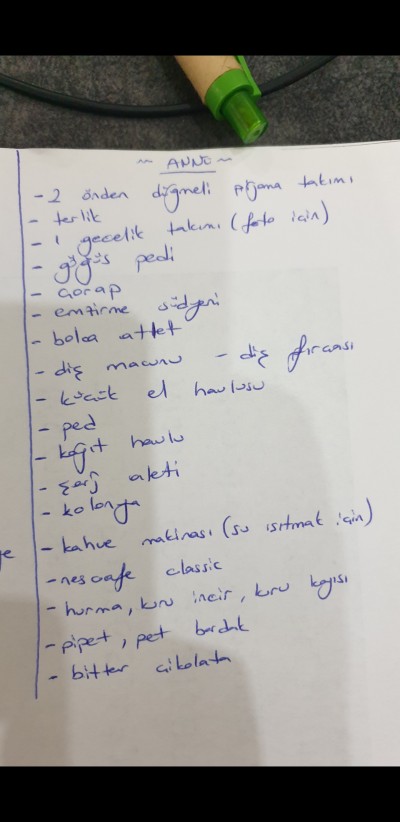 ~ ANNE ~
- 2 önden düğmeli pijama takımı
- terlik
- 1 gecelik takımı (foto için)
- göğüs pedi
- çorap
- emzirme südyeni
- bolca atlet
- diş macunu - diş fırçası
- küçük el havlusu
- ped
- kağıt havlu
- şarj aleti
- kolonya
- kahve makinası (su ısıtmak için)
- nescafe classic
- hurma, kuru incir, kuru kayısı
- pipet, pet bardak
- bitter çikolata